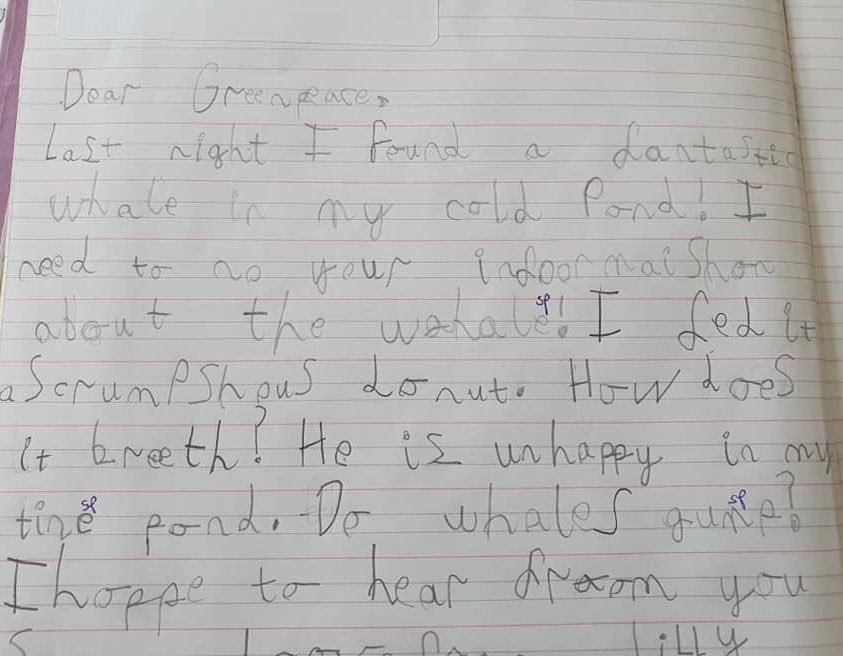 Dear Greenpeace,
Last night I found a fantastic
whale in my cold Pond! I
need to no your infoormaiShon
about the wahale! I fed it
a ScrumpShous donut. How doeS
it breeth? He is unhappy in my
tine pond. Do whales gump?
I hoppe to hear froom you
Lilly